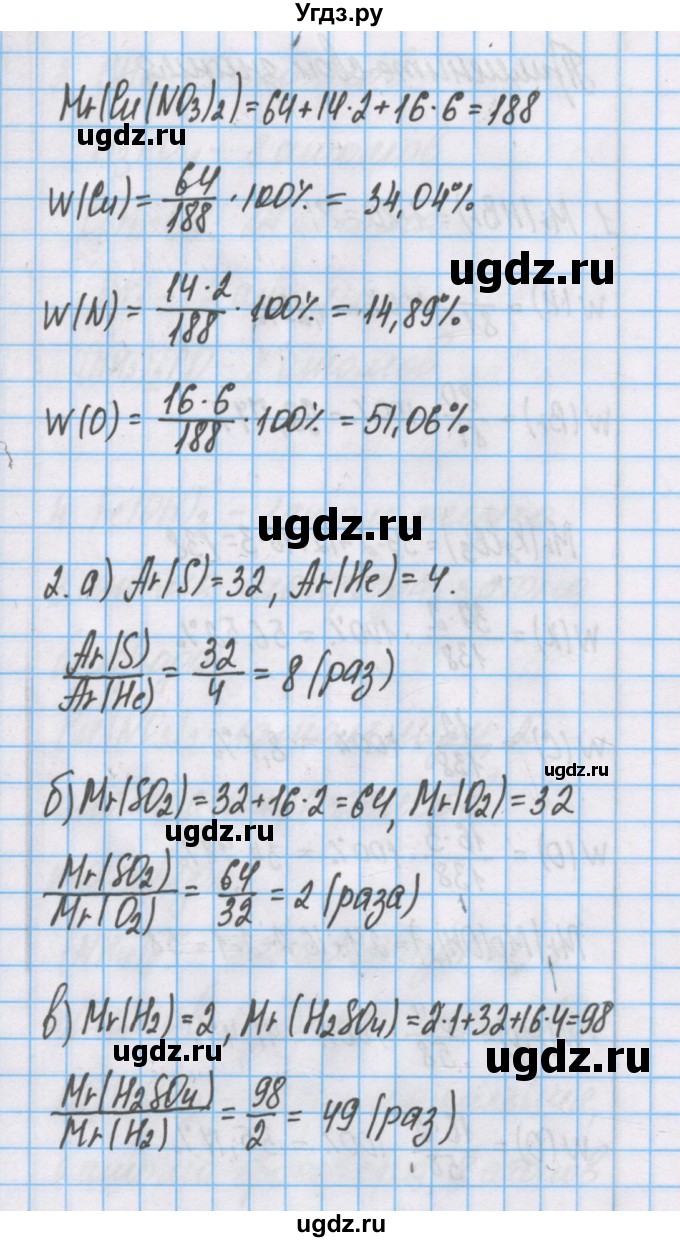 Угдз.ру
Mr(Cu(NO3)2)=64+14·2+16·6=188
ugdz.ru
W(Cu)= 64/188 ·100% = 34,04%
ugdz.ru
ugdz.ru
W(N)= 14·2/188 ·100% = 14,89%
W(O)= 16·6/188 ·100% = 51,06%
ugdz.ru
2. а) Ar(S)=32, Ar(He)=4.
Ar(S)/Ar(He) = 32/4 = 8 (раз)
ugdz.ru
б) Mr(SO2)=32+16·2=64, Mr(O2)=32
ugdz.ru
Mr(SO2)/Mr(O2) = 64/32 = 2 (раза)
в) Mr(H2)=2, Mr(H2SO4)=2·1+32+16·4=98
ugdz.ru
ugdz.ru
Mr(H2SO4)/Mr(H2) = 98/2 = 49 (раз)
ugdz.ru